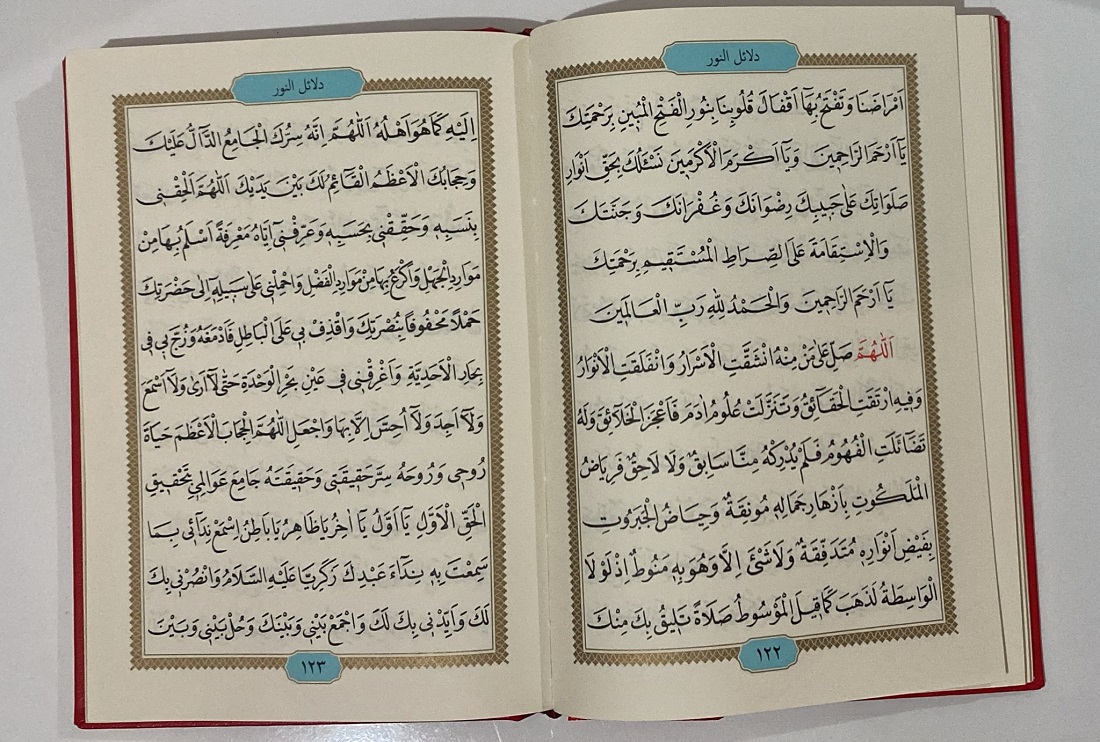 دلائل النور
اَمْرَاضَنَا وَتَفْتَحُ بِهَٓا اَقْفَالَ قُلُوبِنَا بِنُورِ الْفَتْحِ الْمُبٖينِ بِرَحْمَتِكَ
يَٓا اَرْحَمَ الرَّاحِمٖينَ وَيَٓا اَكْرَمَ الْاَكْرَمٖينَ نَسْئَلُكَ بِحَقِّ اَنْوَارِ
صَلَوَاتِكَ عَلٰى حَبٖيبِكَ رِضْوَانَكَ وَغُفْرَانَكَ وَجَنَّتَكَ
وَالْاِسْتِقَامَةَ عَلَى الصِّرَاطِ الْمُسْتَقٖيمِ بِرَحْمَتِكَ
يَٓا اَرْحَمَ الرَّاحِمٖينَ وَالْحَمْدُ لِلّٰهِ رَبِّ الْعَالَمٖينَ
اَللّٰهُمَّ صَلِّ عَلٰى مَنْ مِنْهُ انْشَقَّتِ الْاَسْرَارُ وَانْفَلَقَتِ الْاَنْوَارُ
وَفٖيهِ ارْتَقَتِ الْحَقَٓائِقُ وَتَنَزَّلَتْ عُلُومُ اٰدَمَ فَاَعْجَزَ الْخَلَٓائِقَ وَلَهُ
تَضَٓائَلَتِ الْفُهُومُ فَلَمْ يُدْرِكْهُ مِنَّا سَابِقٌ وَلَا لَاحِقٌ فَرِيَاضُ
الْمَلَكُوتِ بِاَزْهَارِ جَمَالِهٖ مُونِقَةٌ وَحِيَاضُ الْجَبَرُوتِ
بِفَيْضِ اَنْوَارِهٖ مُتَدَفِّقَةٌ وَلَا شَيْئَ اِلَّا وَهُوَ بِهٖ مَنُوطٌ اِذْ لَوْ لَا
الْوَاسِطَةُ لَذَهَبَ كَمَا قٖيلَ الْمَوْسُوطُ صَلَاةً تَلٖيقُ بِكَ مِنْكَ
١٢٢
دلائل النور
اِلَيْهِ كَمَا هُوَ اَهْلُهُ اَللّٰهُمَّ اِنَّهُ سِرُّكَ الْجَامِعُ الدَّٓالُّ عَلَيْكَ
وَحِجَابُكَ الْاَعْظَمُ الْقَٓائِمُ لَكَ بَيْنَ يَدَيْكَ اَللّٰهُمَّ اَلْحِقْنٖى
بِنَسَبِهٖ وَحَقِّقْنٖى بِحَسَبِهٖ وَعَرِّفْنٖى اِيَّاهُ مَعْرِفَةً اَسْلَمُ بِهَا مِنْ
مَوَارِدِ الْجَهْلِ وَاَكْرَعُ بِهَا مِنْ مَوَارِدِ الْفَضْلِ وَاحْمِلْنٖى عَلٰى سَبٖيلِهٖ اِلٰى حَضْرَتِكَ
حَمْلًا مَحْفُوفًا بِنُصْرَتِكَ وَاقْذِفْ بٖى عَلَى الْبَاطِلِ فَاَدْمَغَهُ وَزُجَّ بٖى فٖى
بِحَارِ الْاَحَدِيَّةِ وَاَغْرِقْنٖى فٖى عَيْنِ بَحْرِ الْوَحْدَةِ حَتّٰى لَٓا اَرٰى وَلَٓا اَسْمَعَ
وَلَٓا اَجِدَ وَلَٓا اُحِسَّ اِلَّا بِهَا وَاجْعَلِ اللّٰهُمَّ الْحِجَابَ الْاَعْظَمَ حَيَاةَ
رُوحٖى وَرُوحَهُ سِرَّ حَقٖيقَتٖى وَحَقٖيقَتَهُ جَامِعَ عَوَالِمٖى بِتَحْقٖيقِ
الْحَقِّ الْاَوَّلِ يَٓا اَوَّلُ يَٓا اٰخِرُ يَا ظَاهِرُ يَا بَاطِنُ اِسْمَعْ نِدَٓائٖى بِمَا
سَمِعْتَ بِهٖ نِدَٓاءَ عَبْدِكَ زَكَرِيَّا عَلَيْهِ السَّلَامُ وَانْصُرْنٖى بِكَ
لَكَ وَاَيِّدْنٖى بِكَ لَكَ وَاجْمَعْ بَيْنٖى وَبَيْنَكَ وَحُلْ بَيْنٖى وَبَيْنَ
١٢٣